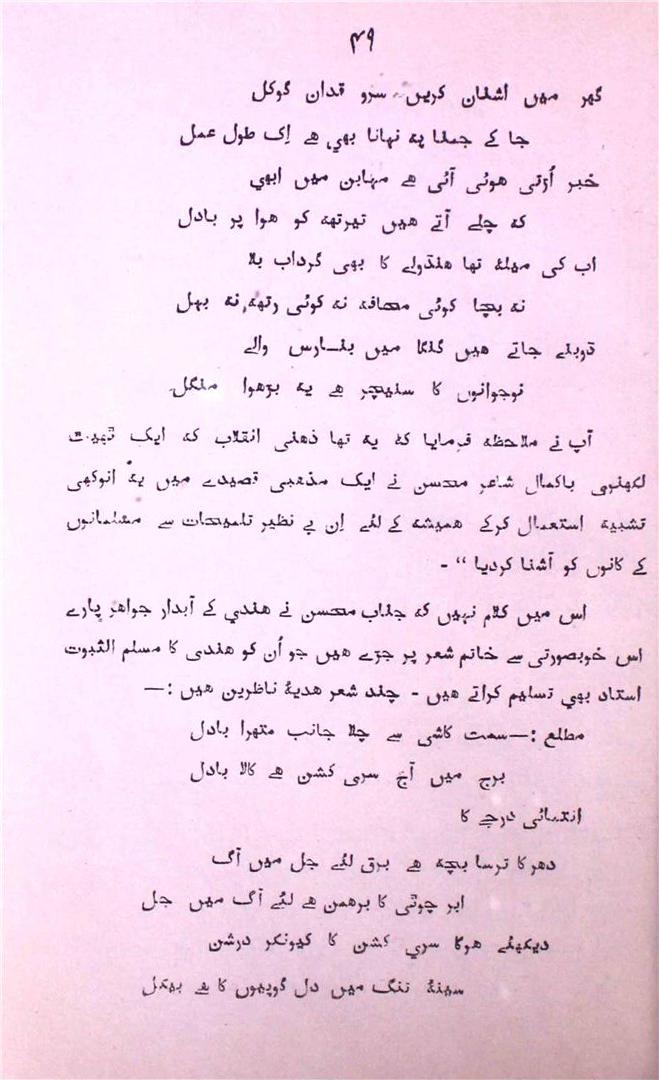 ۴۹
گھر میں اشنان کریں سرو قدان گوکل
جا کے جمنا پہ نہانا بھی ہے اِک طول عمل
خبر اُڑتی ہوئی آئی ہے مہابن میں ابھی
کہ چلے آتے ہیں تیرتھہ کو ہوا پر بادل
اب کی میلہ تھا ہنڈولے کا بھی گرداب بلا
نہ بچا کوئی محافہ نہ کوئی رتھہ، نہ بہل
ڈوبنے جاتے ہیں گنگا میں بنارس والے
نوجوانوں کا سنیچر ہے یہ بڑھوا منگل
آپ نے ملاحظہ فرمایا کہ یہ تھا ذہنی انقلاب کہ ایک ٹھیٹ
لکھنوی باکمال شاعر محسن نے ایک مذہبی قصیدے میں یہ انوکھی
تشبیہ استعمال کرکے ہمیشہ کے لئے اِن بے نظیر تلمیحات سے مسلمانوں
کے کانوں کو آشنا کردیا “ -
اس میں کلام نہیں کہ جناب محسن نے ہندی کے آبدار جواہر پارے
اس خوبصورتی سے خاتم شعر پر جڑے ہیں جو اُن کو ہندی کا مسلم الثبوت
استاد بھی تسلیم کراتے ہیں - چند شعر ہدیۂ ناظرین ہیں :—
مطلع :—سمت کاشی سے چلا جانب متھرا بادل
برج میں آج سری کشن ہے کالا بادل
انتہائی درجے کا
دھر کا ترسا بچہ ہے برق لئے جل میں آگ
ابر چوٹی کا برہمن ہے لئے آگ میں جل
دیکھئے ہوگا سری کشن کا کیونکر درشن
سینۂ تنگ میں دل گوپیوں کا ہے بیکل